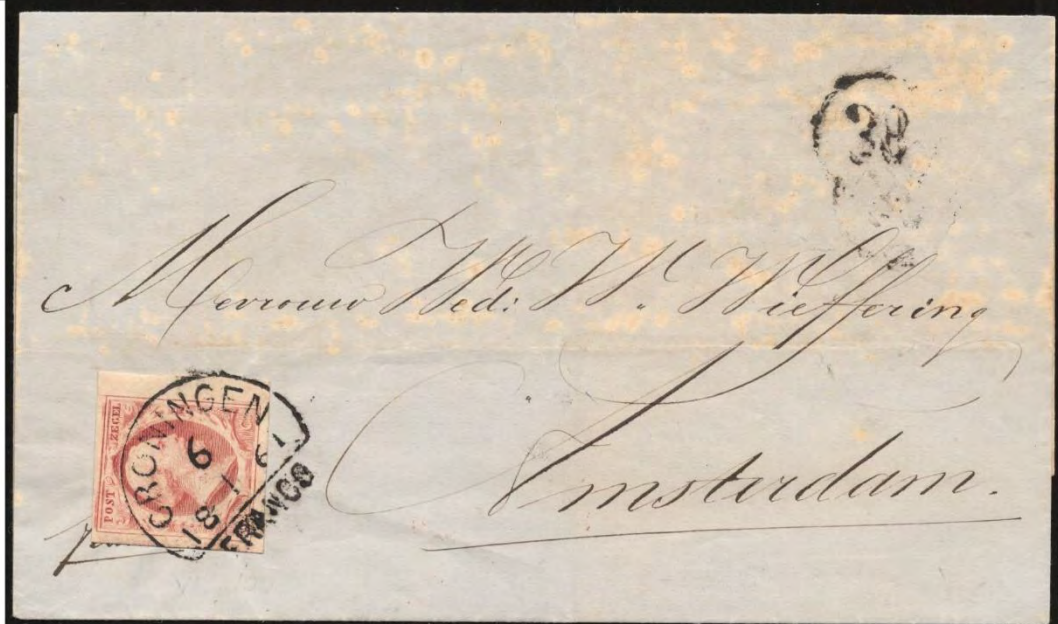 38
Mevrouw Wed: W. Wieffering
Amsterdam.
POST ZEGEL
GRONINGEN
6
1
18 61
FRANCO